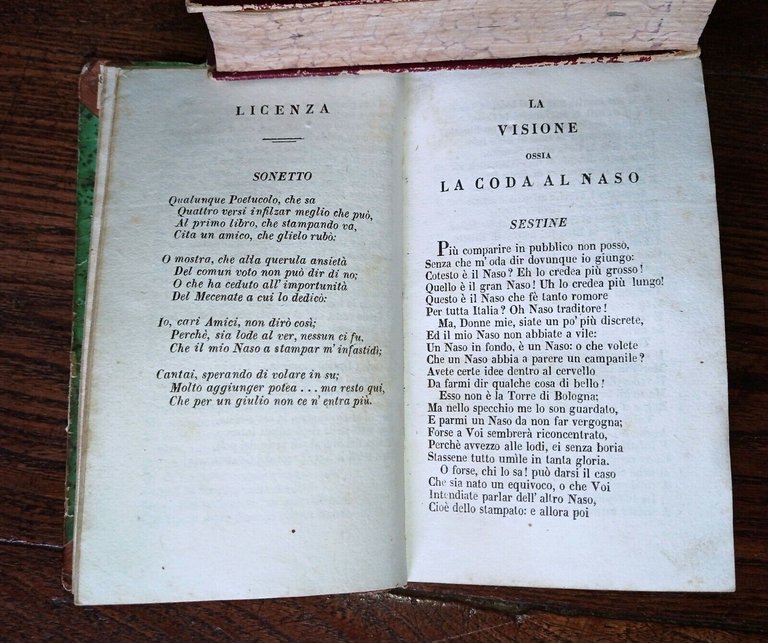 LICENZA
SONETTO
Qualunque Poetucolo, che sa
Quattro versi infilzar meglio che può,
Al primo libro, che stampando va,
Cita un amico, che glielo rubò:
O mostra, che alla querula ansietà
Del comun voto non può dir di no;
O che ha ceduto all' importunità
Del Mecenate a cui lo dedicò:
Io, cari Amici, non dirò così;
Perchè, sia lode al ver, nessun ci fu,
Che il mio Naso a stampar m' infastidì;
Cantai, sperando di volare in su;
Molto aggiunger potea ... ma resto qui,
Che per un giulio non ce n' entra più.
LA
VISIONE
OSSIA
LA CODA AL NASO
SESTINE
Più comparire in pubblico non posso,
Senza che m' oda dir dovunque io giungo:
Cotesto è il Naso? Eh lo credea più grosso!
Quello è il gran Naso! Uh lo credea più lungo!
Questo è il Naso che fè tanto romore
Per tutta Italia? Oh Naso traditore!
Ma, Donne mie, siate un po' più discrete,
Ed il mio Naso non abbiate a vile:
Un Naso in fondo, è un Naso: o che volete
Che un Naso abbia a parere un campanile?
Avete certe idee dentro al cervello
Da farmi dir qualche cosa di bello!
Esso non è la Torre di Bologna;
Ma nello specchio me lo son guardato,
E parmi un Naso da non far vergogna;
Forse a Voi sembrerà riconcentrato,
Perchè avvezzo alle lodi, ei senza boria
Stassene tutto umìle in tanta gloria.
O forse, chi lo sa! può darsi il caso
Che sia nato un equivoco, o che Voi
Intendiate parlar dell' altro Naso,
Cioè dello stampato: e allora poi